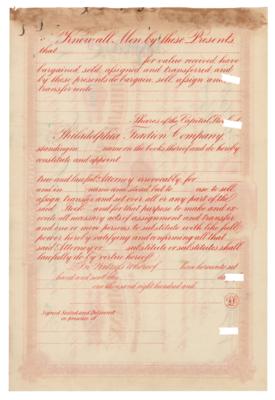 Know all Men by these Presents
that
for value received have
bargained, sold, assigned and transferred and
by these presents do bargain, sell, assign and
transfer unto
Shares of the Capital
Philadelphia Traction Company
standing in name on the books thereof and do hereby
constitute and appoint
true and lawful Attorney irrevocably for
and in name and stead but to use to sell,
assign transfer and set over all or any part of the
said Stock and for that purpose to make and ex-
ecute all necessary acts of assignment and transfer
and one or more persons to substitute with like full
power hereby ratifying and confirming all that
said Attorney or substitute or substitutes shall
lawfully do by virtue hereof
In Witness Whereof have hereunto set
hand and seal this
one thousand eight hundred and
Signed Sealed and Delivered
in presence of